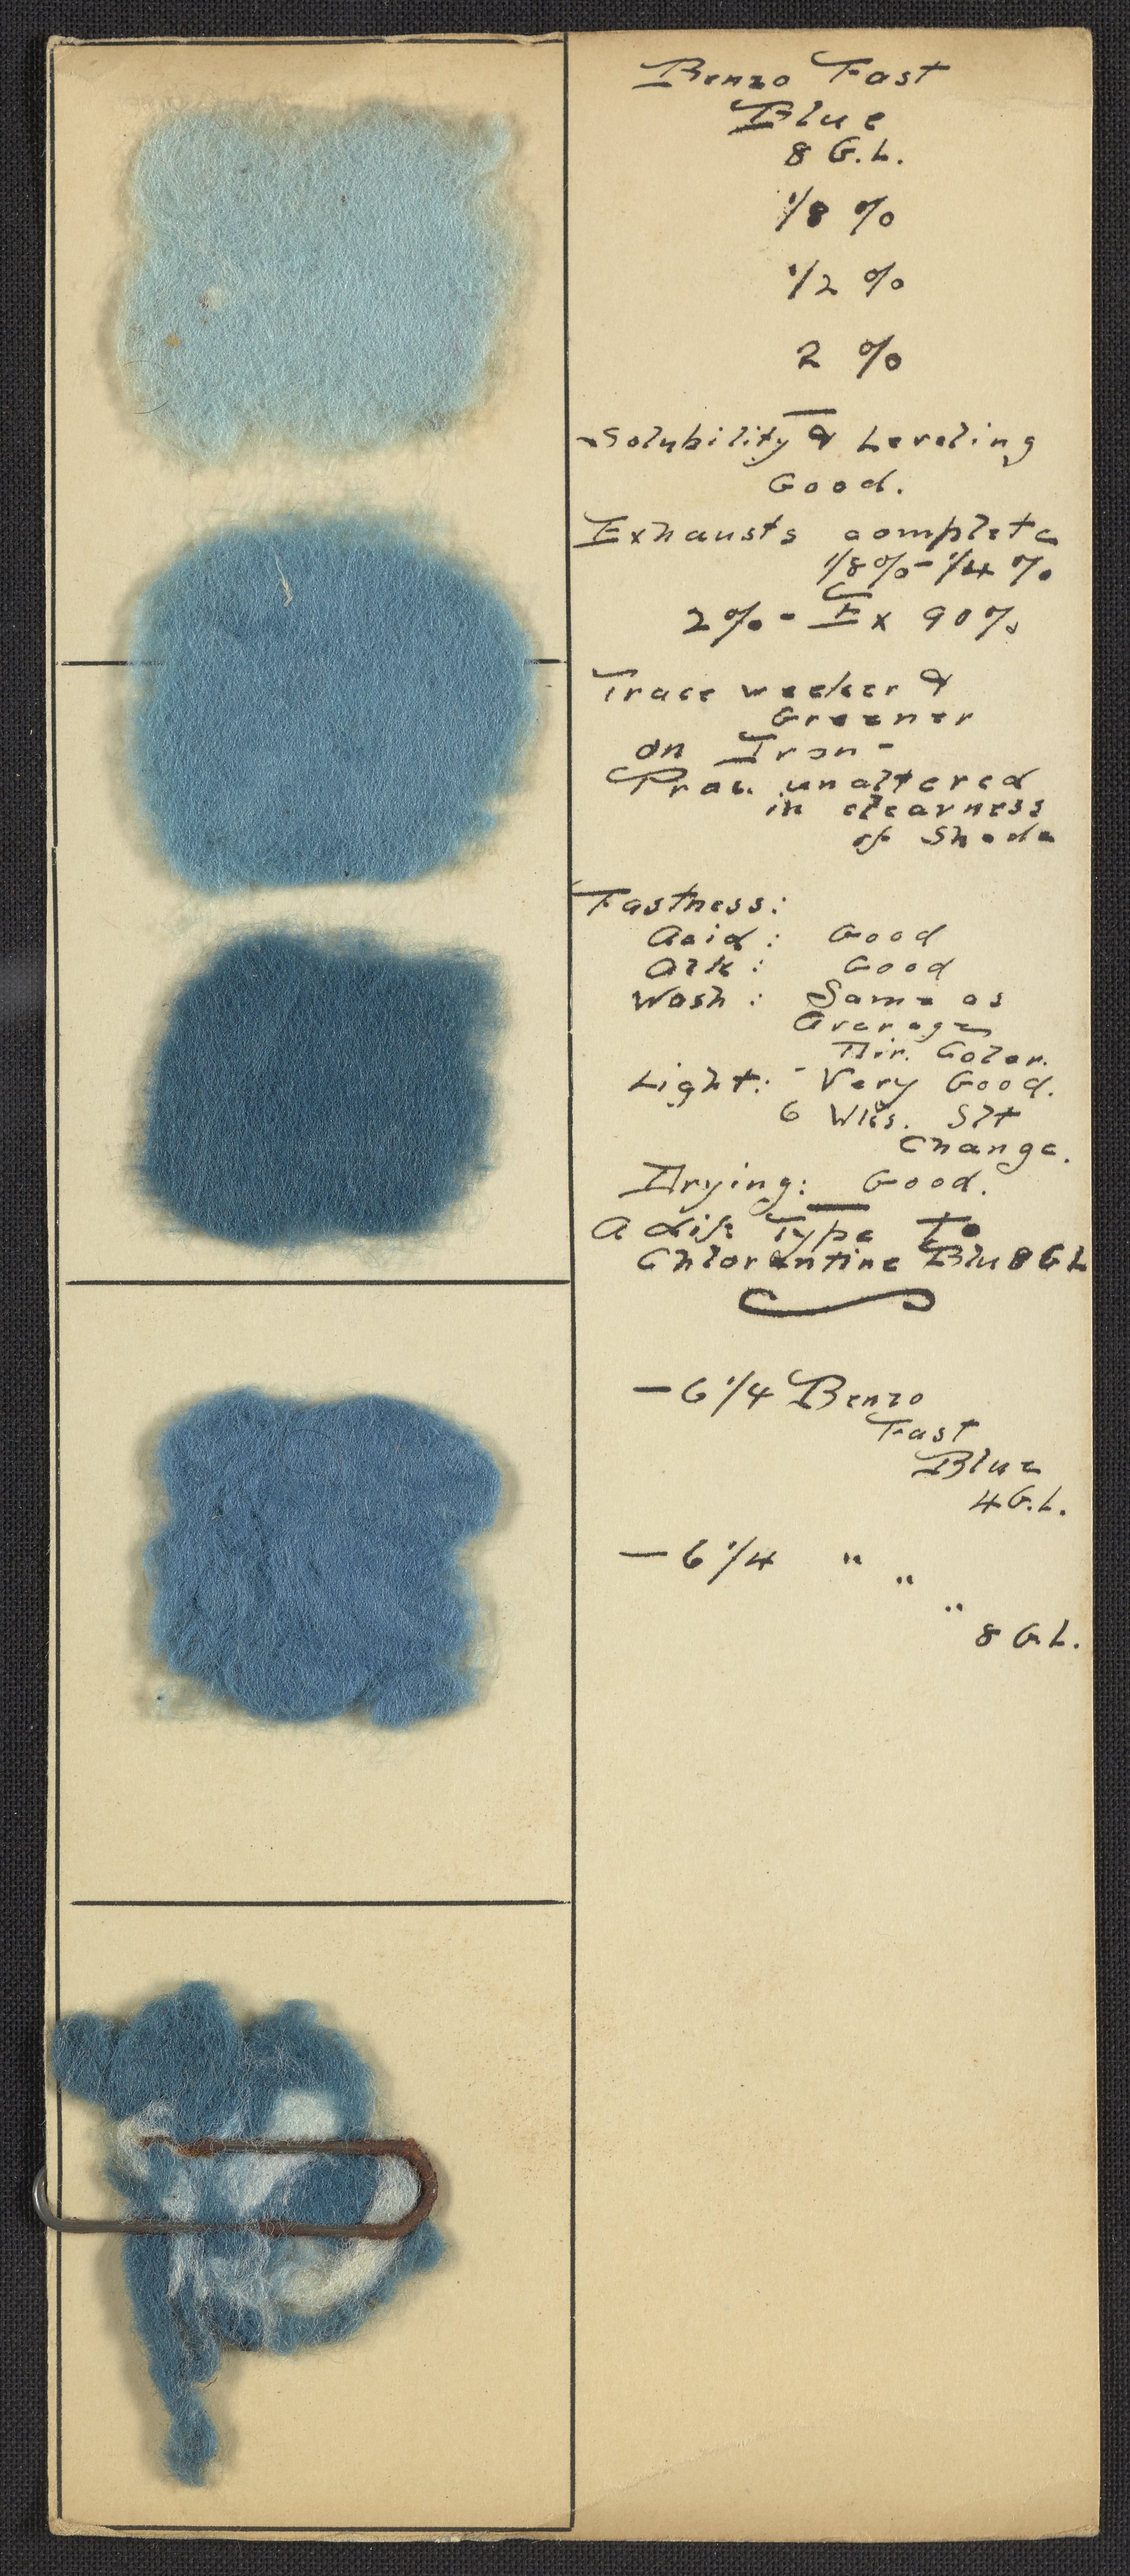 Benzo Fast
Blue
8 G.L.
1/8 %
1/2 %
2 %
Solubility & Leveling
Good.
Exhausts complete
1/8%-1/4 %
2% - Ex 90%
Trace weaker &
Greener
on Iron -
Prac. unaltered
in clearness
of Shade
Fastness:
Acid: Good
Alk: Good
Wash: Same as
Average
Dir. Color.
Light: - Very Good.
6 Wks. Slt
Change.
Drying: Good.
A dif. Type To
Chlorantine Blu 8GL
— 6 1/4 Benzo
Fast
Blue
4 G.L.
— 6 1/4 "
"
"
8 G.L.